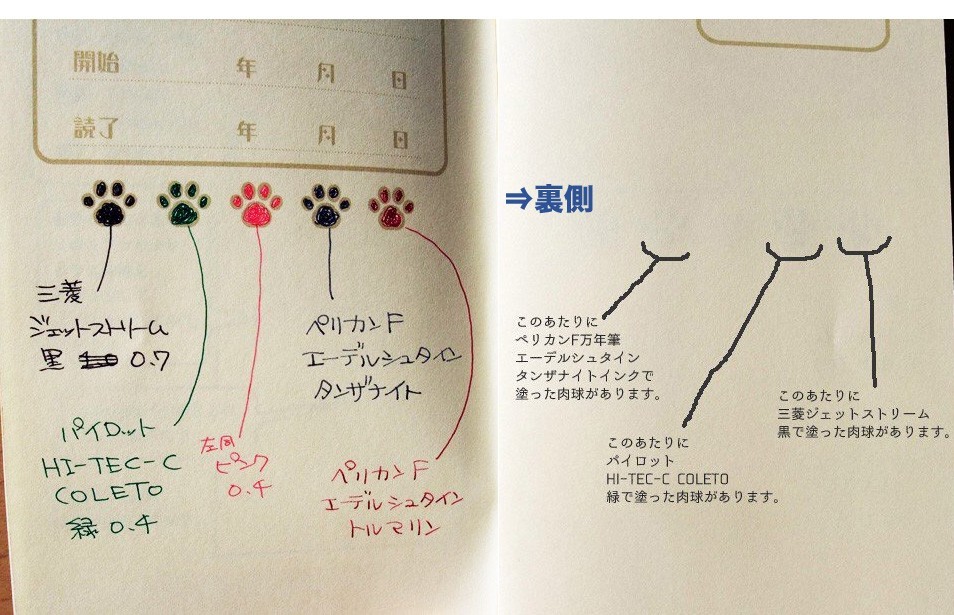 開始 年 月 日
読了 年 月 日
三菱
ジェットストリーム
黒 0.7
パイロット
HI-TEC-C
COLETO
緑 0.4
左同
ピンク
0.4
ペリカンF
エーデルシュタイン
タンザナイト
ペリカンF
エーデルシュタイン
トルマリン
⇒裏側
このあたりに
ペリカンF万年筆
エーデルシュタイン
タンザナイトインクで
塗った肉球があります。
このあたりに
パイロット
HI-TEC-C COLETO
緑で塗った肉球があります。
このあたりに
三菱ジェットストリーム
黒で塗った肉球があります。